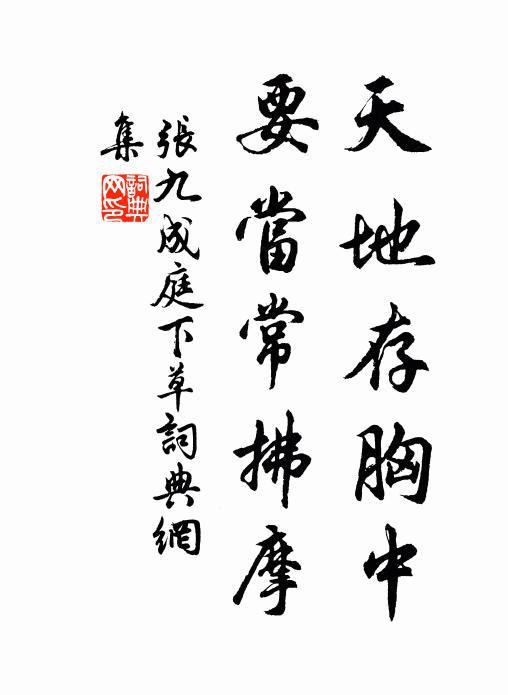 天地存胸中
要當常拂摩
張九成庭下草詞典網
集
詞典
网印